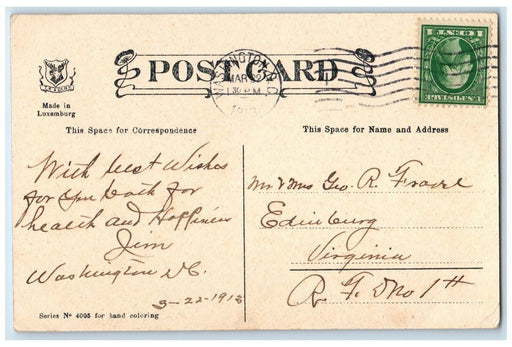 POST CARD
WASHINGTON, D.C.
MAR 22
1 30 PM
1 CENT 1
U.S. POSTAGE
Made in
Luxemburg
This Space for Correspondence
This Space for Name and Address
With best Wishes
for you both for
health and Happiness
Jim
Washington DC.
3-22-1913
Mr & Mrs Geo. R.
Edinburg
Virginia
R. F. D No 1
Series Nº 4005 for hand coloring